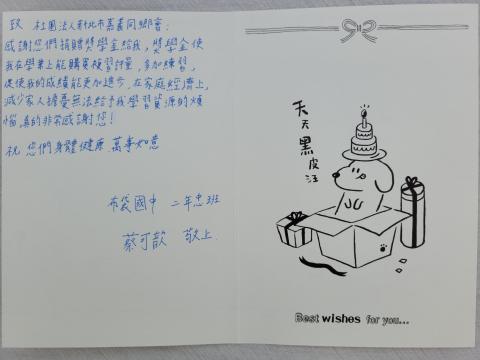 致 社團法人新北市嘉義同鄉會:
感謝您們捐贈獎學金給我,獎學金使
我在學業上能購買複習評量,多加練習,
促使我的成績能更加進步,在家庭經濟上,
減少家人擔憂無法給予我學習資源的煩
惱,真的非常感謝您!
祝 您們身體健康 萬事如意
布袋國中 二年忠班
蔡可歆 敬上.
天天黑皮汪
Best wishes for you...